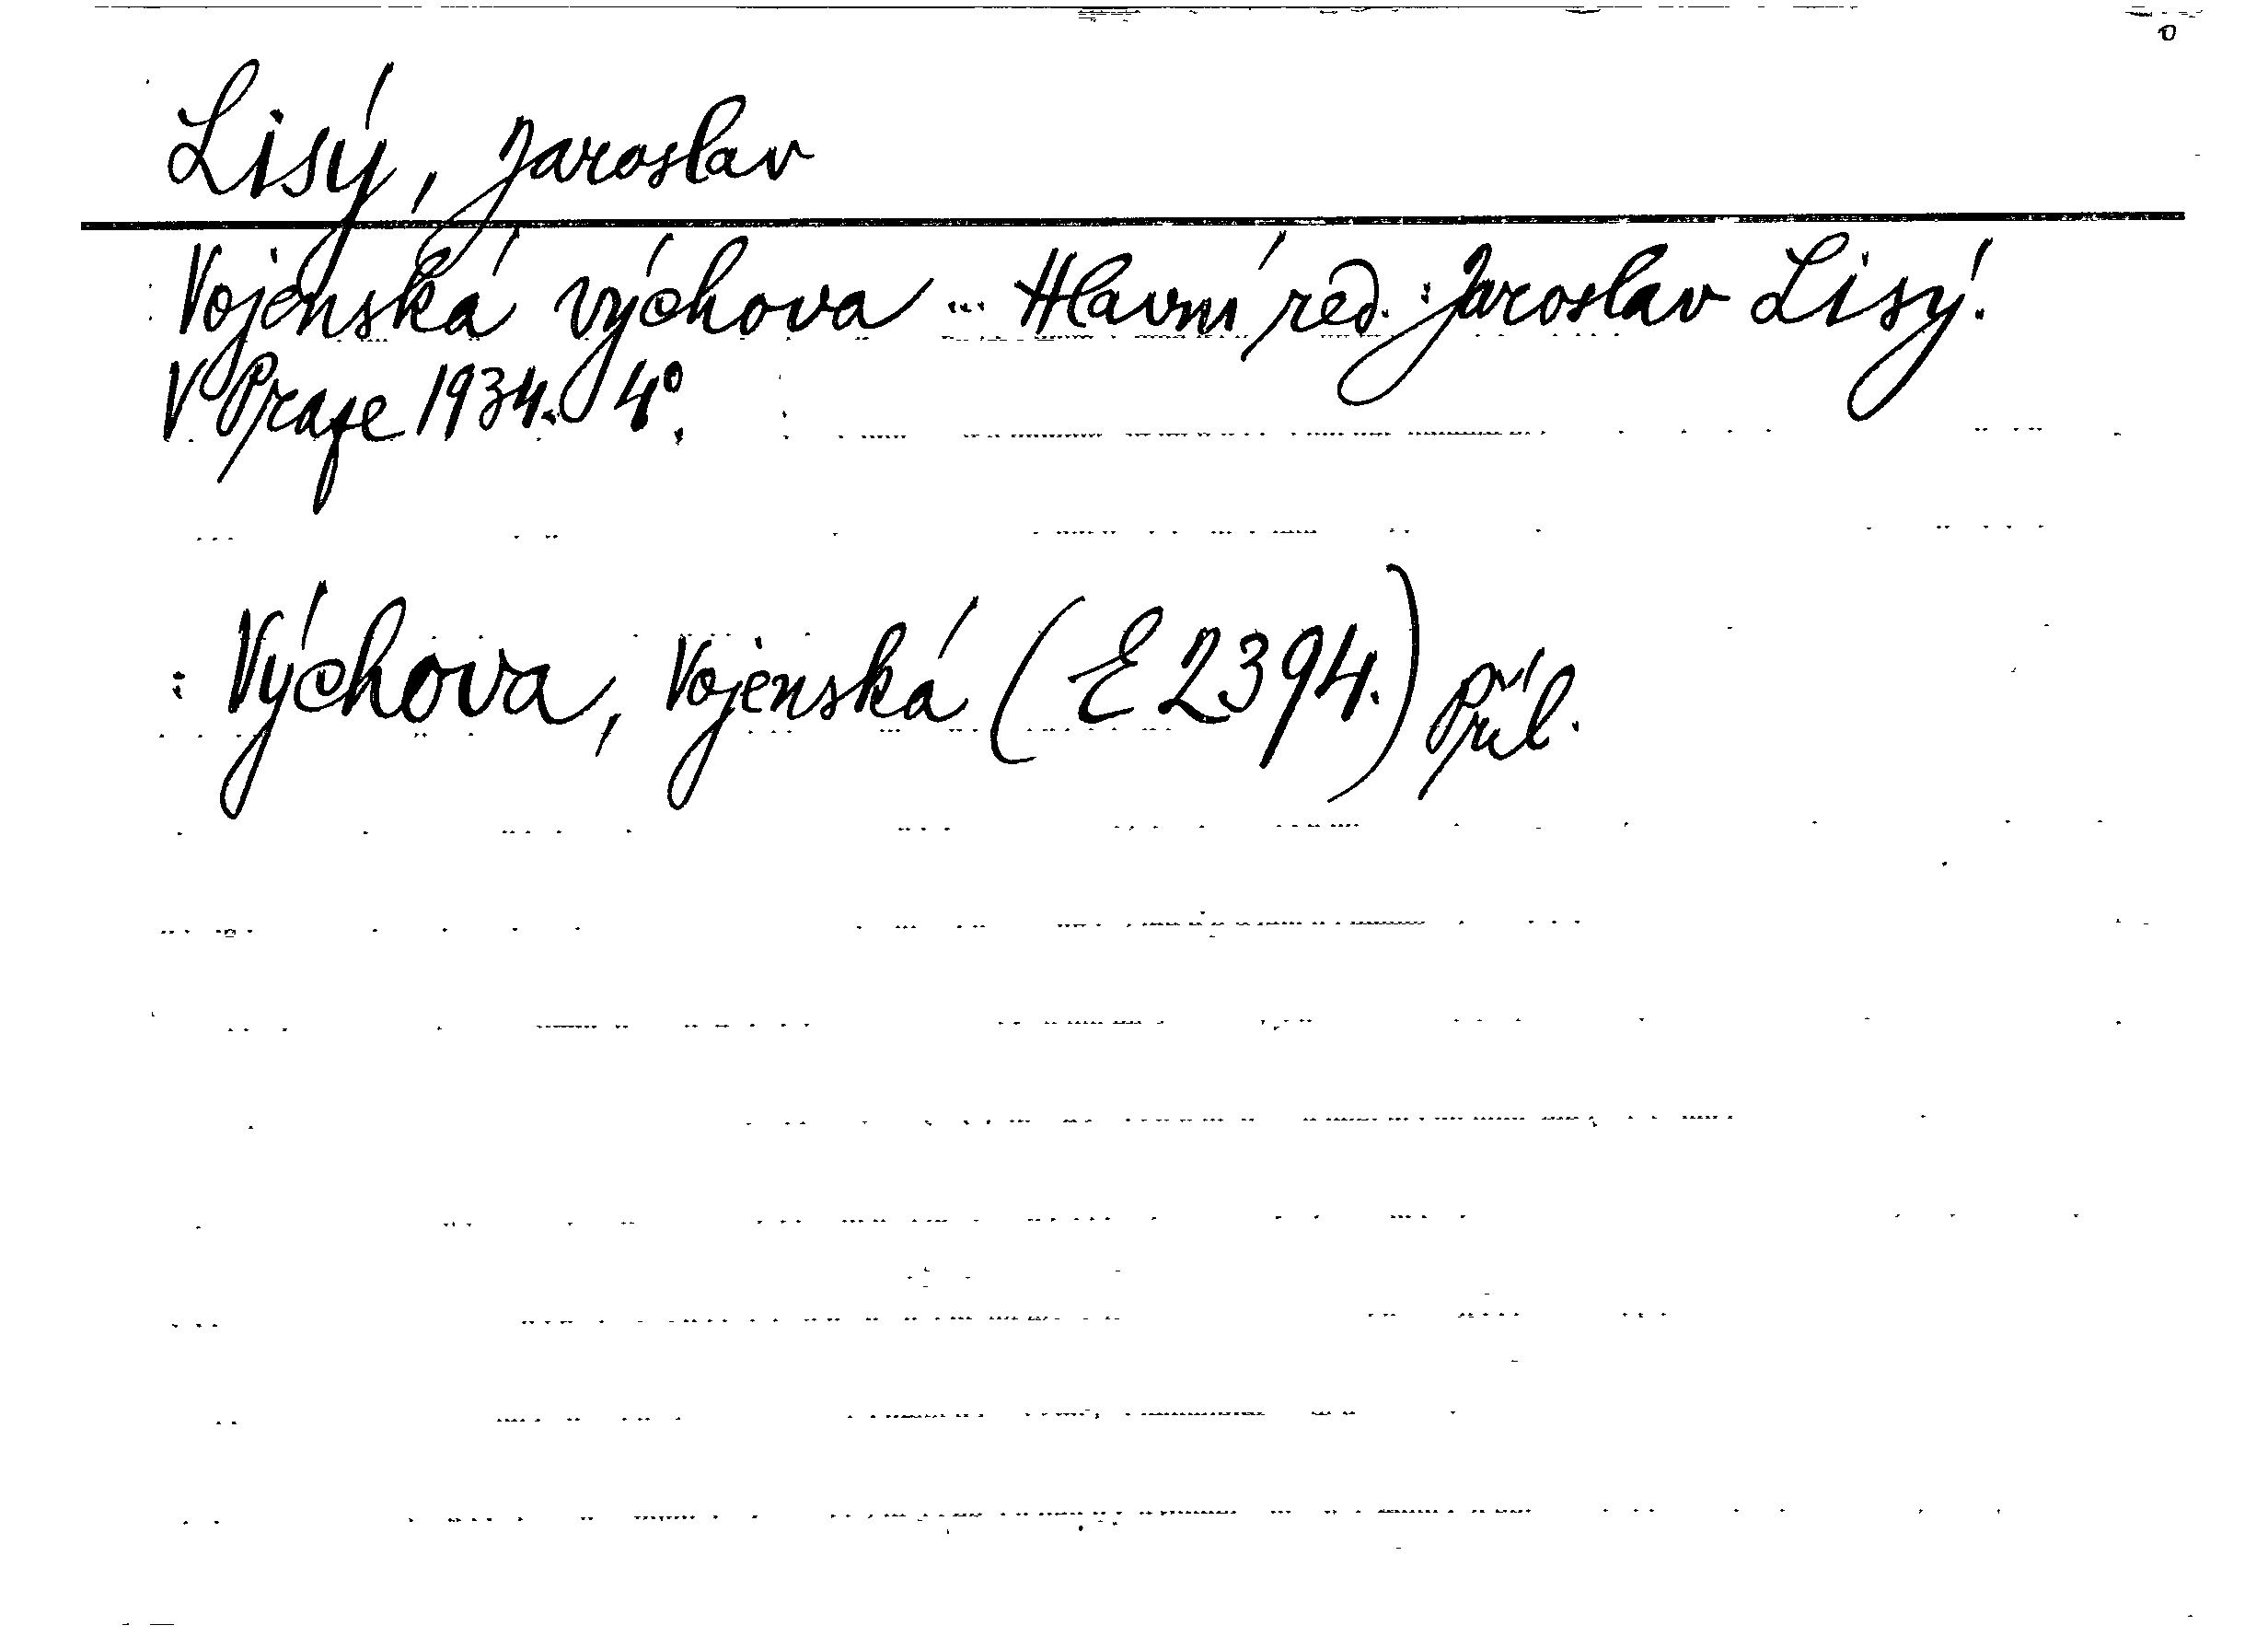 Lisý, Jaroslav
Vojenská výchova ... Hlavní red. Jaroslav Lisý.
V Praze 1934. 4°.
Výchova, Vojenská (E 2394.) Příl.